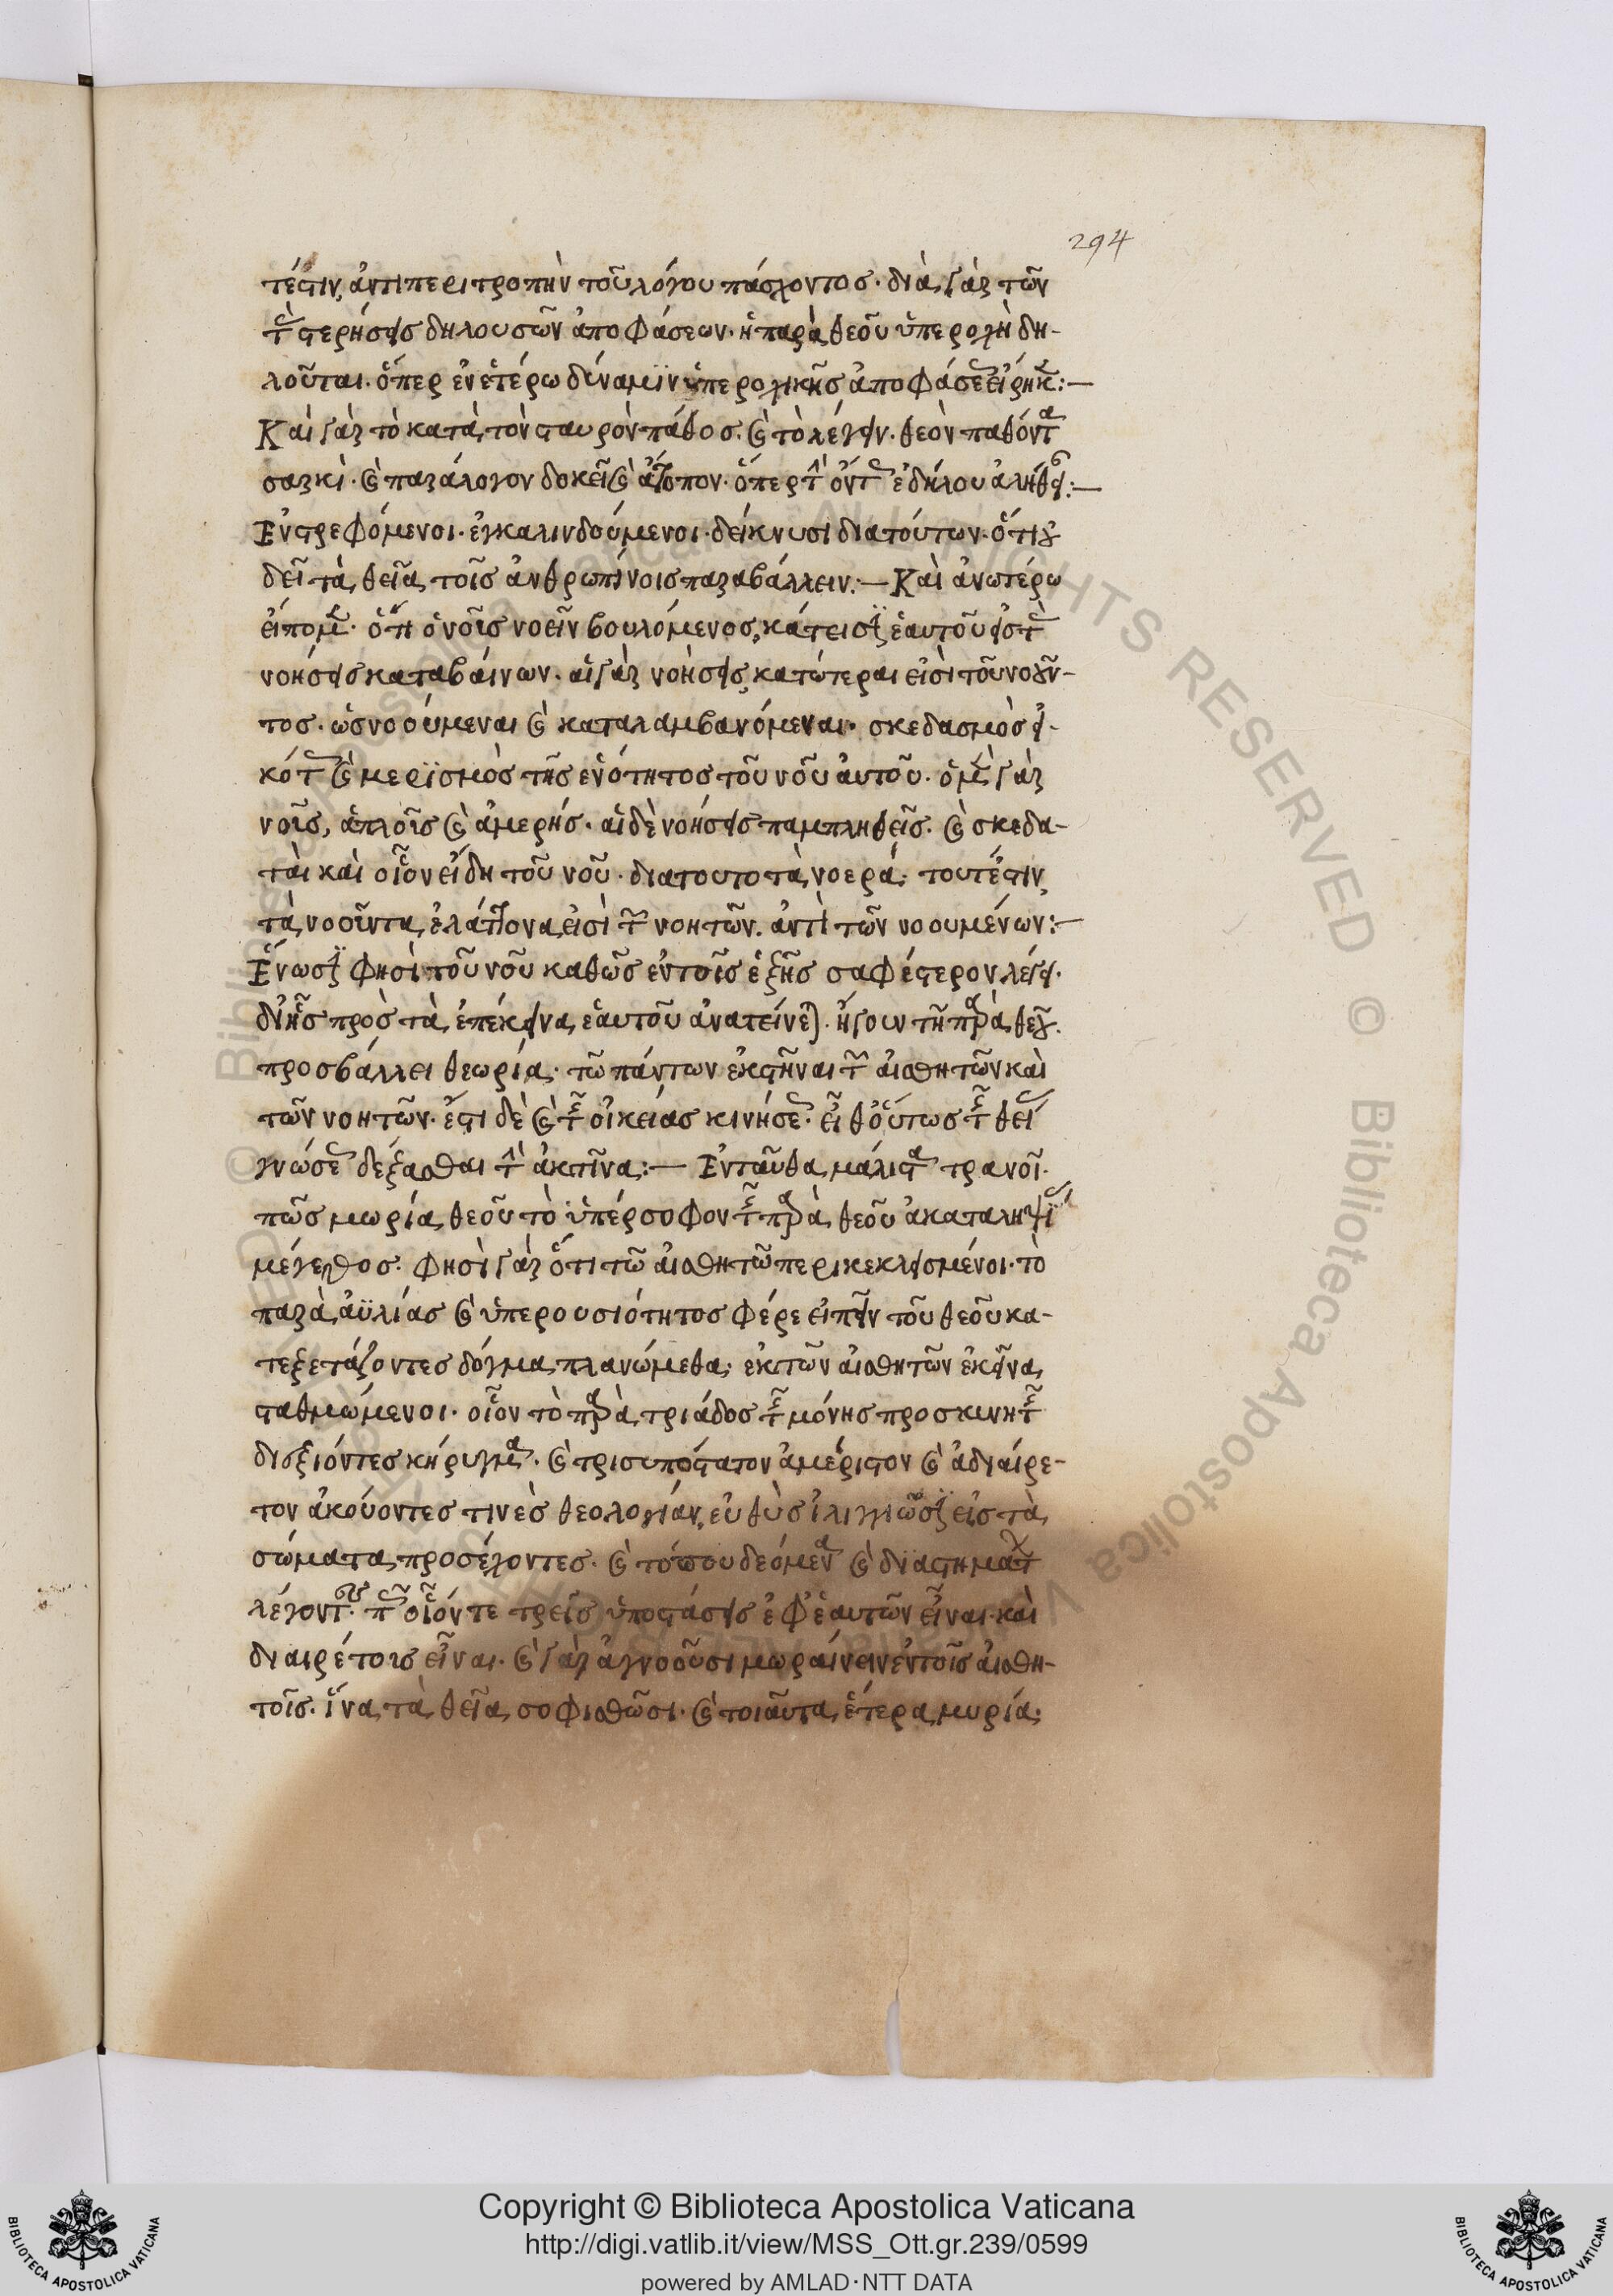 294
τέστιν, ἀντιπεριτροπὴν τοῦ λόγου πάσχοντος· διὰ γὰρ τῶν
τὰς στερήσεις δηλουσῶν ἀποφάσεων· ἡ παρὰ θεοῦ ὑπεροχὴ δη-
λοῦται· ὅπερ ἐν ἑτέρω δύναμϊν ὑπεροχικῆς ἀποφάσεως εἴρηκε:—
Καὶ γὰρ τὸ κατὰ τὸν σταυρὸν πάθος. καὶ τὸ λέγειν· θεὸν παθόντα
σαρκὶ· καὶ παράλογον δοκεῖ καὶ ἄτοπον· ὅπερ τὴν ὄντως ἐδήλου ἀλήθειαν:—
Ἐνστρεφόμενοι· ἐγκαλινδούμενοι· δείκνυσι διατούτων· ὅτι οὐ
δεῖ τὰ θεῖα τοῖς ἀνθρωπίνοις παραβάλλειν:— Καὶ ἀνωτέρω
εἴπομεν· ὅτι ὁ νοῦς νοεῖν βουλόμενος, κάτεισϊν ἑαυτοῦ εἰς τὰς
νοήσεις καταβαίνων· αἱ γὰρ νοήσεις κατώτεραι εἰσὶ τοῦ νοοῦν-
τος· ὡς νοούμεναι καὶ καταλαμβανόμεναι· σκεδασμὸς εἰ-
κότως καὶ μερϊσμὸς τῆς ἑνότητος τοῦ νοῦ αὐτοῦ· ὁ μὲν γὰρ
νοῦς, ἁπλοῦς καὶ ἀμερής· αἱ δὲ νοήσεις παμπληθεῖς· καὶ σκεδα-
ταὶ καὶ οἷον εἴδη τοῦ νοῦ· διατουτο τὰ νοερά· τουτέστιν
τὰ νοοῦντα, ἐλάττονα εἰσὶ τῶν νοητῶν. ἀντὶ τῶν νοουμένων:—
Ἕνωσϊν φησὶ τοῦ νοῦ καθὼς ἐν τοῖς ἑξῆς σαφέστερον λέγει·
δι’ ἧς πρὸς τὰ ἐπέκεινα ἑαυτοῦ ἀνατείνεται· ἤγουν τῆ παρὰ θεοῦ
προσβάλλει θεωρία· τῶ πάντων ἐκστῆναι τῶν αἰσθητῶν καὶ
τῶν νοητῶν· ἔτι δὲ καὶ τῆς οἰκείας κινήσεως· εἶθ’ οὕτως τῆς θείας
γνώσεως δέξασθαι τὴν ἀκτῖνα:— Ἐνταῦθα μάλιστα τρανοῖ·
πῶς μωρία θεοῦ τὸ ὑπέρσοφον τῆς παρὰ θεοῦ ἀκαταληψίας
μέγεθος· φησὶ γὰρ ὅτι τῶ αἰσθητῶ περικεκλεισμένοι· τὸ
παρὰ ἀϋλίας καὶ ὑπερουσιότητος φέρε εἰπεῖν τοῦ θεοῦ κα-
τεξετάζοντες δόγμα πλανώμεθα· ἐκ τῶν αἰσθητῶν ἐκεῖνα
σταθμώμενοι· οἷον τὸ παρὰ τριάδος τῆς μόνης προσκυνητῆς
διεξιόντες κήρυγμα· καὶ τρισυπόστατον ἀμέριστον καὶ ἀδιαίρε-
τον ἀκούοντες τινὲς θεολογίαν, εὐθὺς ἰλιγγιῶσϊν εἰς τὰ
σώματα προσέχοντες· καὶ τόπου δεόμενα καὶ διαστημάτων
λέγοντες· πῶς οἷόν τε τρεῖς ὑποστάσεις ἐφ’ ἑαυτῶν εἶναι· καὶ
διαιρέτοις εἶναι· καὶ γὰρ ἀγνοοῦσι μωραίνειν ἐν τοῖς αἰσθη-
τοῖς· ἵνα τὰ θεῖα σοφισθῶσι· καὶ τοιαῦτα ἕτερα μυρία·
Copyright © Biblioteca Apostolica Vaticana
http://digi.vatlib.it/view/MSS_Ott.gr.239/0599
powered by AMLAD·NTT DATA